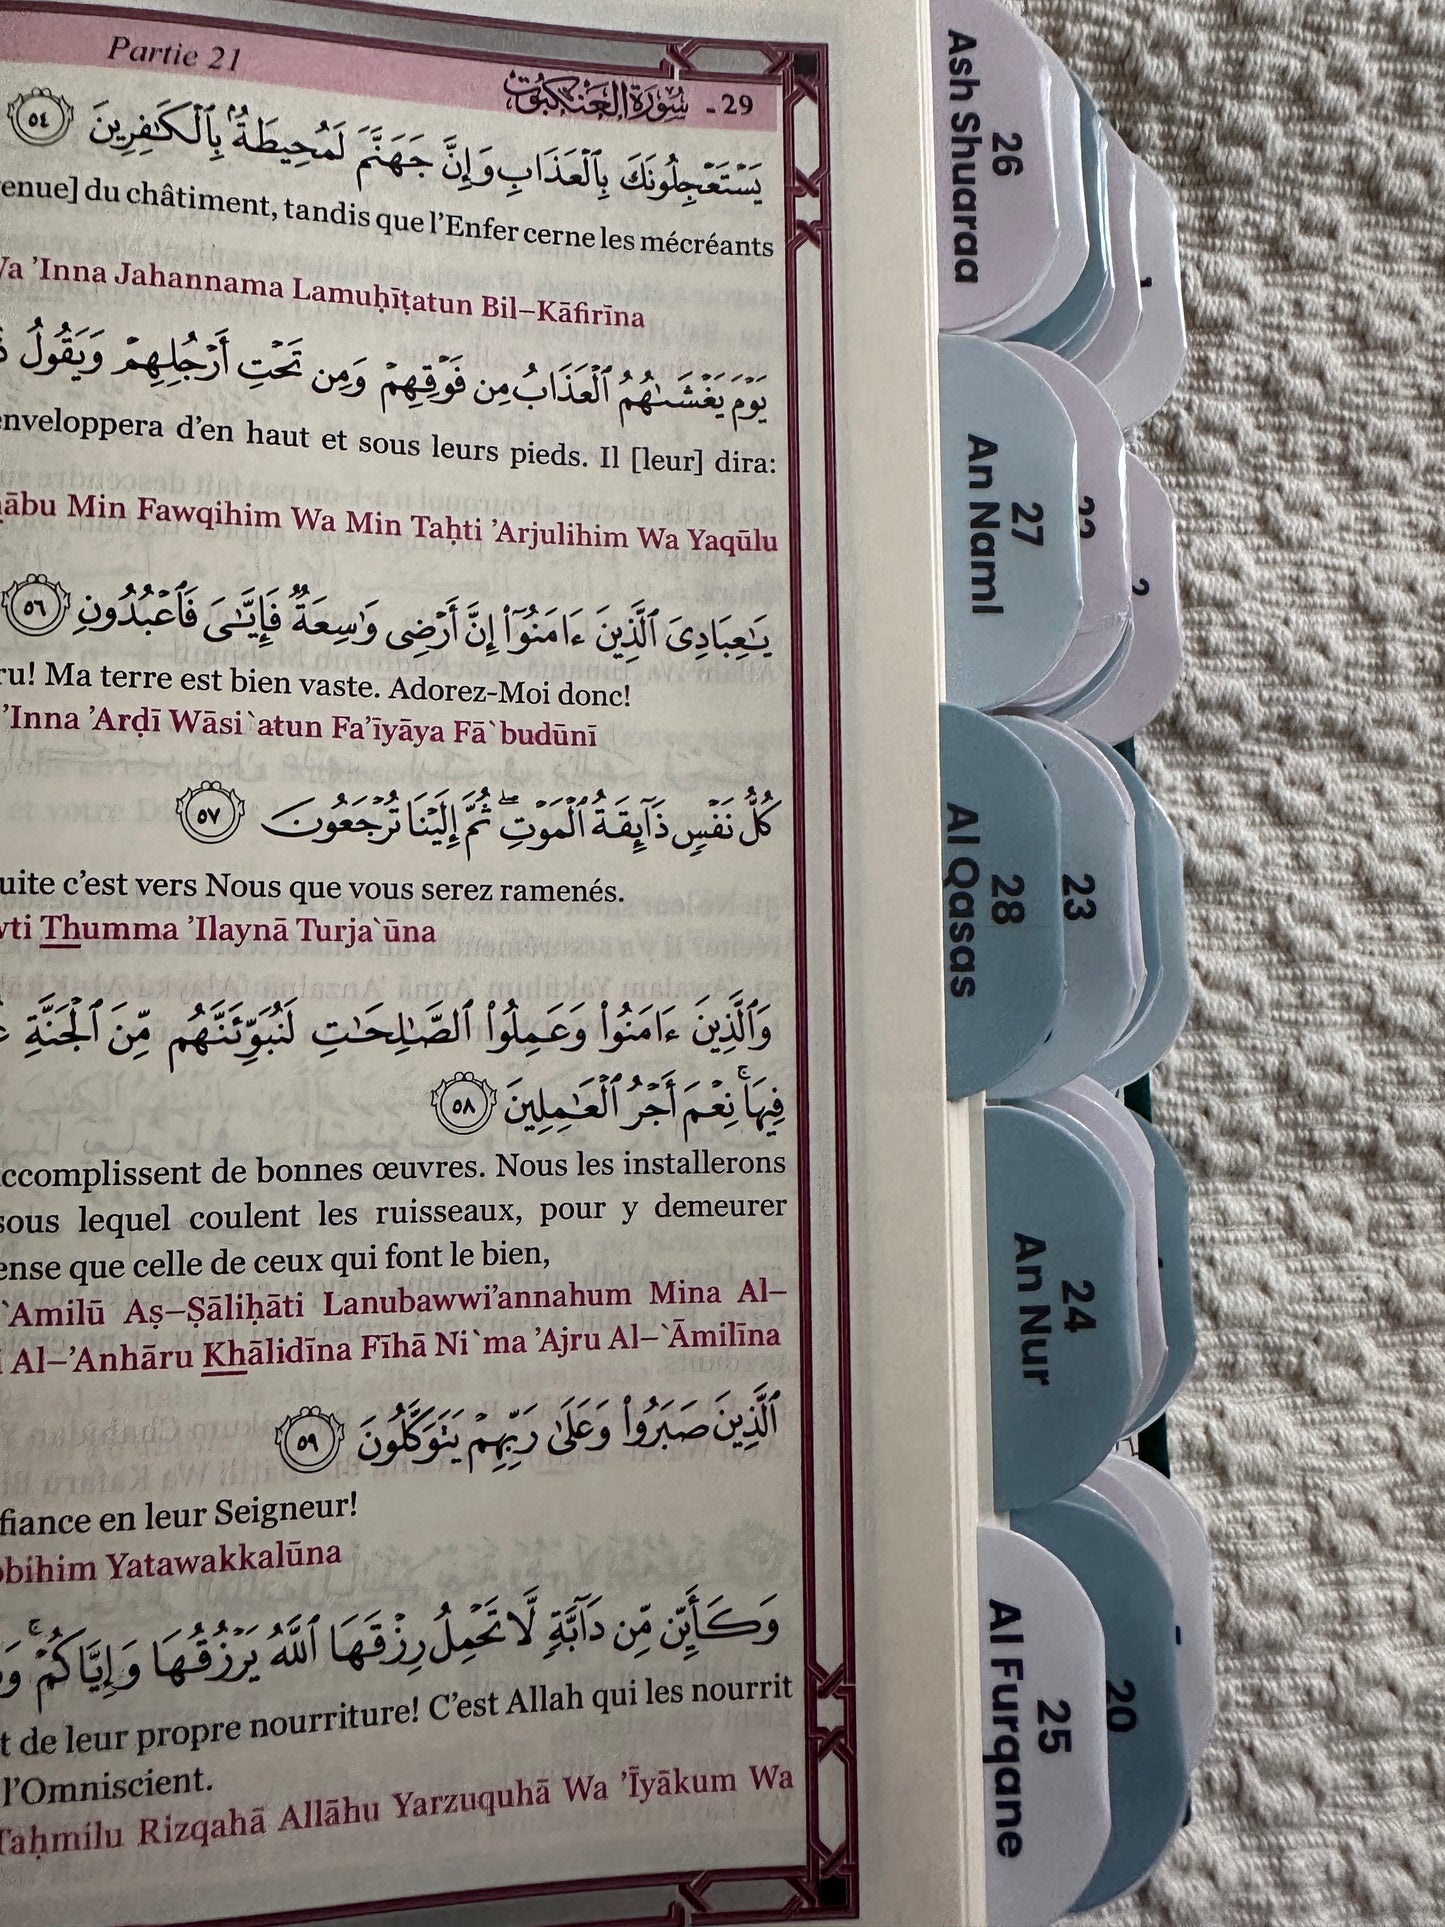 Partie 21
29 - سُورَةُ الْعَنكَبُوت
يَسْتَعْجِلُونَكَ بِٱلْعَذَابِ وَإِنَّ جَهَنَّمَ لَمُحِيطَةٌۢ بِٱلْكَـٰفِرِينَ ٥٤
enue] du châtiment, tandis que l’Enfer cerne les mécréants
’Inna Jahannama Lamuḥīṭatun Bil–Kāfirīna
يَوْمَ يَغْشَىٰهُمُ ٱلْعَذَابُ مِن فَوْقِهِمْ وَمِن تَحْتِ أَرْجُلِهِمْ وَيَقُولُ
enveloppera d’en haut et sous leurs pieds. Il [leur] dira:
ābu Min Fawqihim Wa Min Taḥti ’Arjulihim Wa Yaqūlu
يَـٰعِبَادِىَ ٱلَّذِينَ ءَامَنُوٓا۟ إِنَّ أَرْضِى وَٰسِعَةٌ فَإِيَّـٰىَ فَٱعْبُدُونِ ٥٦
ru! Ma terre est bien vaste. Adorez-Moi donc!
’Inna ’Arḍī Wāsi`atun Fa’īyāya Fā`budūnī
كُلُّ نَفْسٍ ذَآئِقَةُ ٱلْمَوْتِ ۖ ثُمَّ إِلَيْنَا تُرْجَعُونَ ٥٧
uite c’est vers Nous que vous serez ramenés.
ti Thumma ’Ilaynā Turja`ūna
وَٱلَّذِينَ ءَامَنُوا۟ وَعَمِلُوا۟ ٱلصَّـٰلِحَـٰتِ لَنُبَوِّئَنَّهُم مِّنَ ٱلْجَنَّةِ
فِيهَا ۚ نِعْمَ أَجْرُ ٱلْعَـٰمِلِينَ ٥٨
ccomplissent de bonnes œuvres. Nous les installerons
sous lequel coulent les ruisseaux, pour y demeurer
ense que celle de ceux qui font le bien,
`Amilū Aṣ–Ṣāliḥāti Lanubawwi’annahum Mina Al–
Al–’Anhāru Khālidīna Fīhā Ni`ma ’Ajru Al–`Āmilīna
ٱلَّذِينَ صَبَرُوا۟ وَعَلَىٰ رَبِّهِمْ يَتَوَكَّلُونَ ٥٩
fiance en leur Seigneur!
bihim Yatawakkalūna
وَكَأَيِّن مِّن دَآبَّةٍ لَّا تَحْمِلُ رِزْقَهَا ٱللَّهُ يَرْزُقُهَا وَإِيَّاكُمْ ۚ
t de leur propre nourriture! C’est Allah qui les nourrit
l’Omniscient.
Taḥmilu Rizqahā Allāhu Yarzuquhā Wa ’Īyākum Wa
26
Ash Shuaraa
27
An Naml
22
2
28
Al Qasas
23
24
An Nur
25
Al Furqane
20